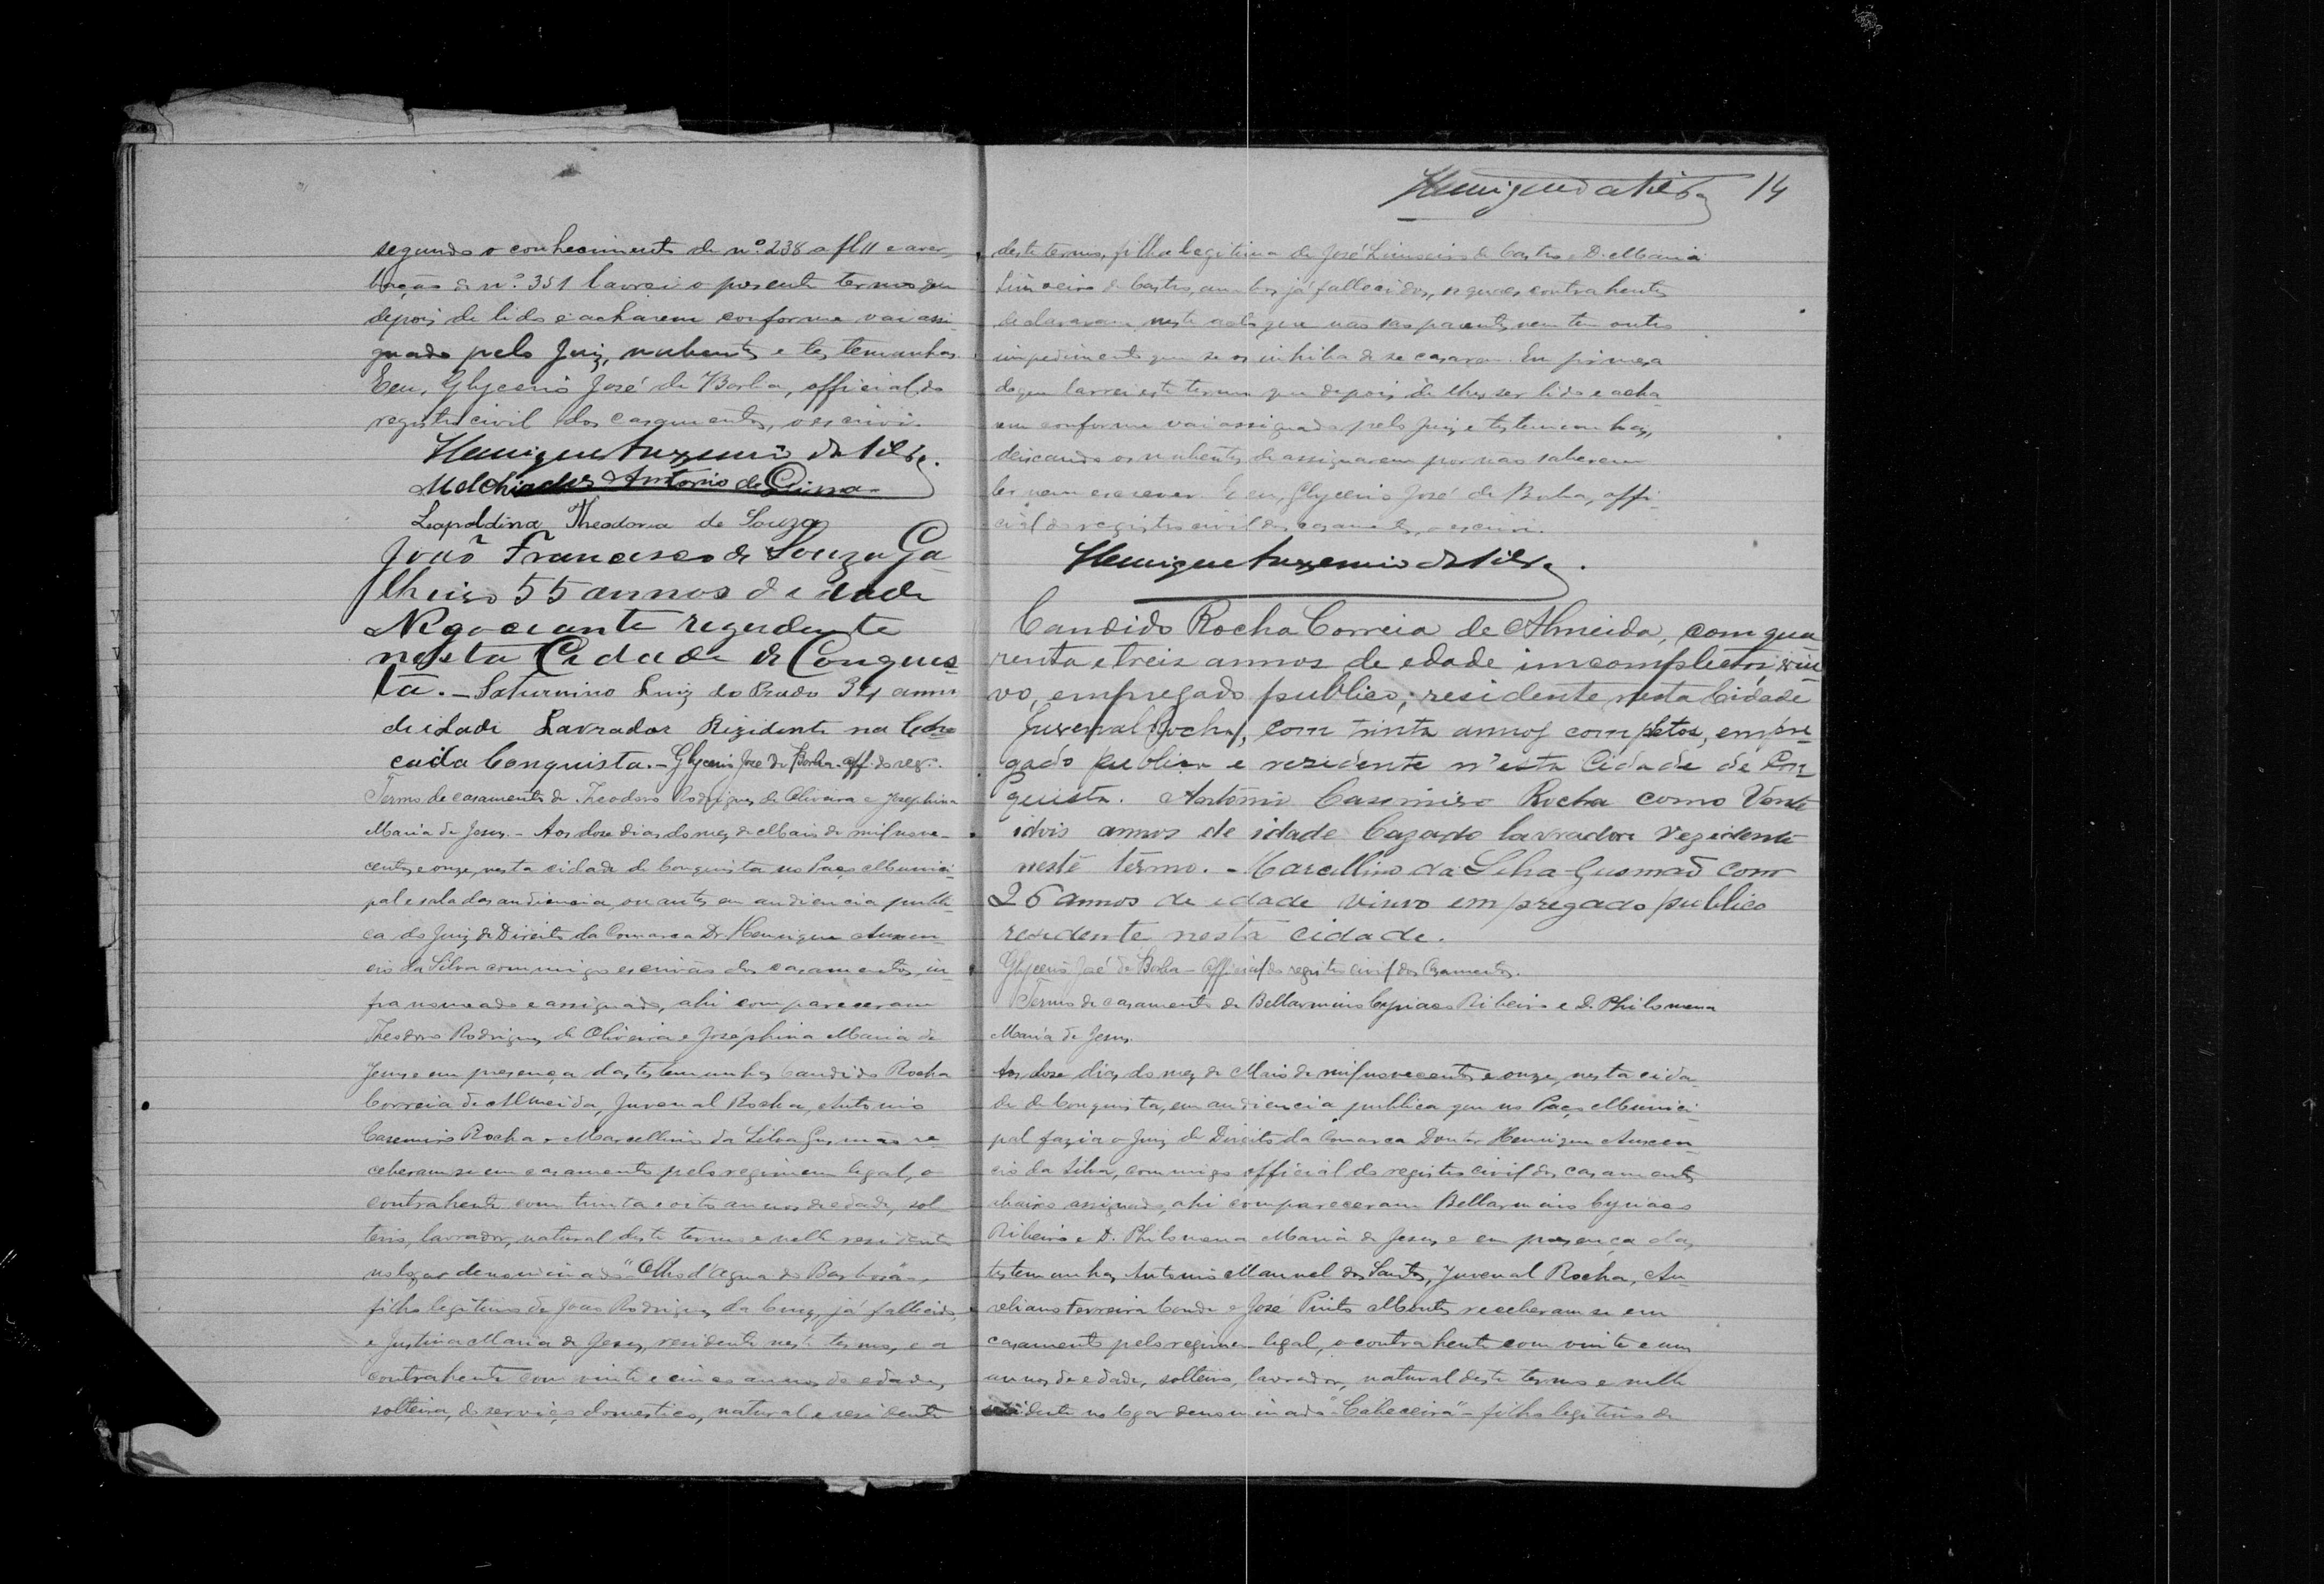 segundo o conhecimento de nº 238 a fl 11 e aver-
bação de nº 351 lavrei o presente termo que
depois de lido e acharem conforme vai assi-
gnado pelo Juiz, nubentes e testemunhas.
E eu, Glycerio José de Borba, official do
registro civil dos casamentos, o escrivi.
Henrique Auxencio da Silva.
Melchiades Antonio de Lima
Leopoldina Theodora de Souza
João Francisco de Souza Ga-
lheiro 55 annos de idade
Negociante rezedente
nesta Cidade de Conquis-
ta. - Saturnino Luiz do Prado 34 annos
de idade Lavrador Rizidente na
cuida Conquista. - Glycerio José de Borba. off. do reg.
Termo de casamento de Theodoro Rodrigues de Oliveira e Josephina
Maria de Jesus. - Aos dose dias do mez de Maio de mil nove-
centos e onze, nesta cidade de Conquista no Paço Munici-
pal e sala das audiencia, ou antes em audiencia publi-
ca do Juiz de Direito da Comarca Dr. Henrique Auxen-
cio da Silva commigo escrivão dos casamentos, in-
fra nomeado e assignado, ahi compareceram
Theodoro Rodrigues de Oliveira e Joséphina Maria de
Jesus e em presença das testemunhas Candido Rocha
Correia de Almeida, Juvenal Rocha, Antonio
Casemiro Rocha e Marcellino da Silva Gusmão re-
ceberam-se em casamento pelo regimem legal, o
contrahente com trinta e oito annos de edade, sol-
teiro, lavrador, natural deste termo e nelle residente
no logar denominado "Olho d'agua do Barbosa",
filho legitimo de João Rodrigues da Cruz, já fallecido,
e Justina Maria de Jesus, residente neste termo, e a
contrahente com vinte e cinco annos de edade,
solteira, do serviço domestico, natural e residente
Henrique da Silva 14
deste termo, filha legitima de José Limoeiro de Castro e D. Maria
Limoeiro de Castro, ambos já fallecidos, os quaes contrahentes
declararam neste acto que não são parentes nem tem outro
impedimento que se os inhiba de se casarem. Em firmeza
do que lavrei este termo que depois de lhes ser lido e acha-
rem conforme vai assignado pelo Juiz e testemunhas,
deixando os nubentes de assignarem por não saberem
ler nem escrever. E eu, Glycerio José de Borba, offi-
cial do registro civil dos casamentos, o escrivi.
Henrique Auxencio da Silva.
Candido Rocha Correia de Almeida, com qua
renta e treis annos de edade imcompletos, viu-
vo, empregado publico; residente nesta Cidade
Juvenal Rocha, com trinta annos completos, empre-
gado publico e residente n'esta Cidade de Con
quista. Antonio Casimiro Rocha como Vente
idois annos de idade Cazado lavradore rezidente
neste termo. - Marcellino da Silva Gusmaõ com
26 annos de edade viuvo empregado publico
residente nesta cidade.
Glycerio José de Borba - Official do registro civil dos Casamentos.
Termo de casamento de Bellarmino Cypriaco Ribeiro e D. Philomena
Maria de Jesus.
Aos dose dias do mez de Maio de mil novecentos e onze, nesta cida-
de de Conquista, em audiencia publica que no Paço Munici-
pal fazia o Juiz de Direito da Comarca Doutor Henrique Auxen-
cio da Silva, commigo official do registro civil dos casamentos
abaixo assignado, ahi compareceram Bellarmino Cyriaco
Ribeiro e D. Philomena Maria de Jesus e em presença das
testemunhas Antonio Manuel dos Santos, Juvenal Rocha, Au-
reliano Ferreira Conde e José Pinto Montes receberam-se em
casamento pelo regimen legal, o contrahente com vinte e um
annos de edade, solteiro, lavrador, natural deste termo e nelle
residente no logar denominado "Cabeceira" - filho legitimo de